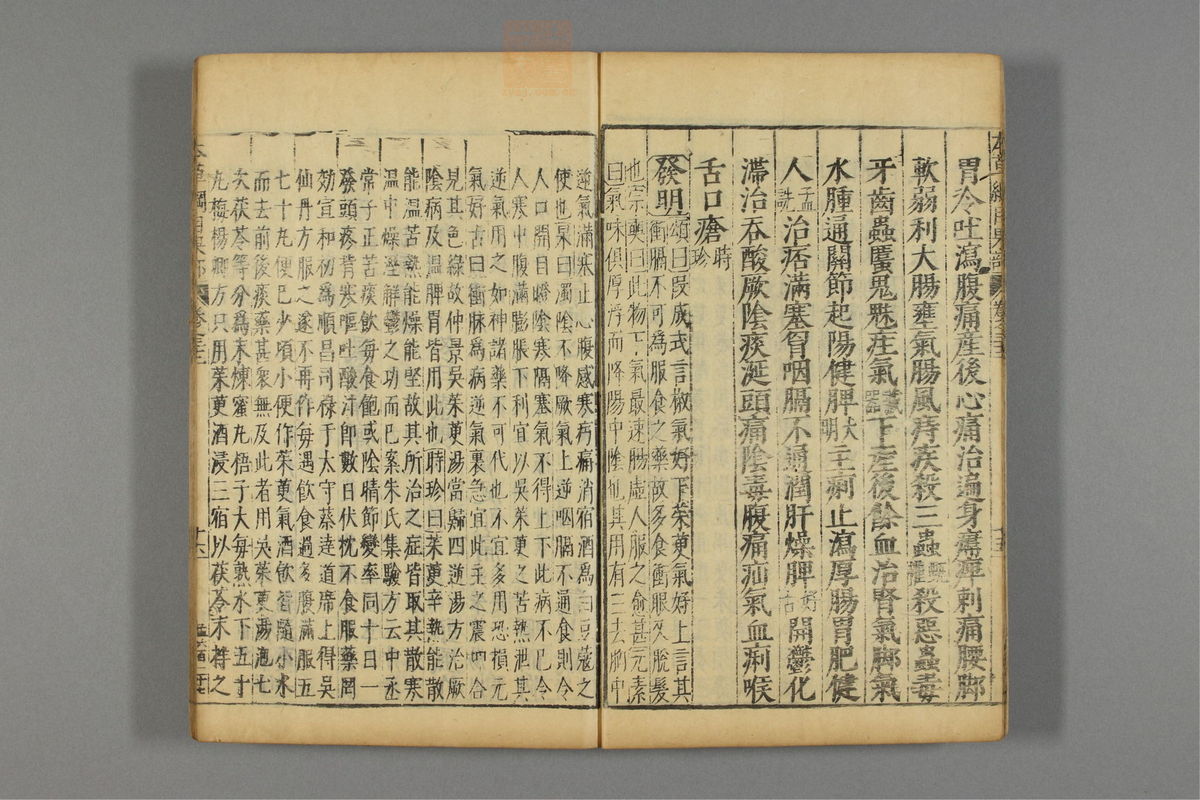 胃冷吐瀉腹痛產後心痛治遍身㾦痺刺痛腰脚
軟弱利大腸壅氣腸風痔疾殺三蟲甄權殺惡蟲毒
牙齒蟲䘌鬼魅疰氣藏器下產後餘血治腎氣脚氣
水腫通關節起陽健脾大明主痢止瀉厚腸胃肥健
人孟詵治痞滿塞胷咽膈不通潤肝燥脾好古開鬱化
滯治吞酸厥陰痰涎頭痛陰毒腹痛疝氣血痢喉
舌口瘡時珍
發明頌曰段成式言椒氣好下茱萸氣好上言其
衝膈不可為服食之藥故多食衝眼又脫髮
也宗奭曰此物下氣最速腸虛人服之愈甚元素
曰氣味俱厚浮而降陽中陰也其用有三去胸中
逆氣滿塞止心腹感寒㽲痛消宿酒為白豆蔻之
使也杲曰濁陰不降厥氣上逆咽膈不通食則令
人口開目瞪陰寒隔塞氣不得上下此病不已令
人寒中腹滿膨脹下利宜以吳茱萸之苦熱泄其
逆氣用之如神諸藥不可代也不宜多用恐損元
氣好古曰衝脉為病逆氣裏急宜此主之震坤合
見其色綠故仲景吳茱萸湯當歸四逆湯方治厥
陰病及溫脾胃皆用此也時珍曰茱萸辛熱能散
能溫苦熱能燥能堅故其所治之症皆取其散寒
溫中燥溼解鬱之功而已案朱氏集驗方云中丞
常子正苦痰飲每食飽或陰晴節變率同十日一
發頭疼背寒嘔吐酸汁即數日伏枕不食服藥罔
効宣和初為順昌司祿于太守蔡達道席上得吳
仙丹方服之遂不再作每遇飲食過多腹滿服五
七十丸便已少頃小便作茱萸氣酒飲皆隨小水
而去前後痰藥甚衆無及此者用吳茱萸湯泡七
次茯苓等分為末煉蜜丸梧子大每熟水下五十
丸梅楊卿方只用茱萸酒浸三宿以茯苓末拌之
本草綱目果部
卷三十二
十六